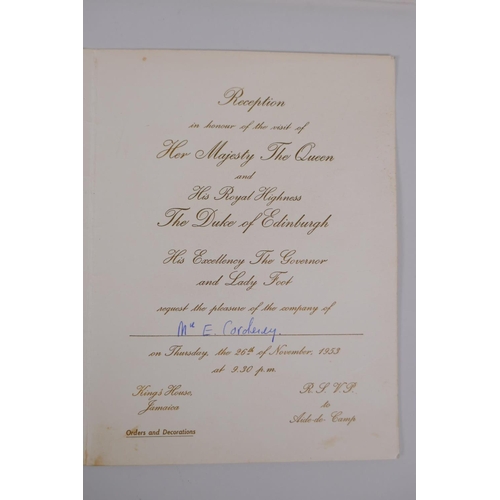 Reception
in honour of the visit of
Her Majesty The Queen
and
His Royal Highness
The Duke of Edinburgh
His Excellency The Governor
and Lady Foot
request the pleasure of the company of
Mr E. Cordeney.
on Thursday, the 26th of November, 1953
at 9.30 p.m.
King's House,
Jamaica
R.S.V.P.
to
Aide-de-Camp
Orders and Decorations